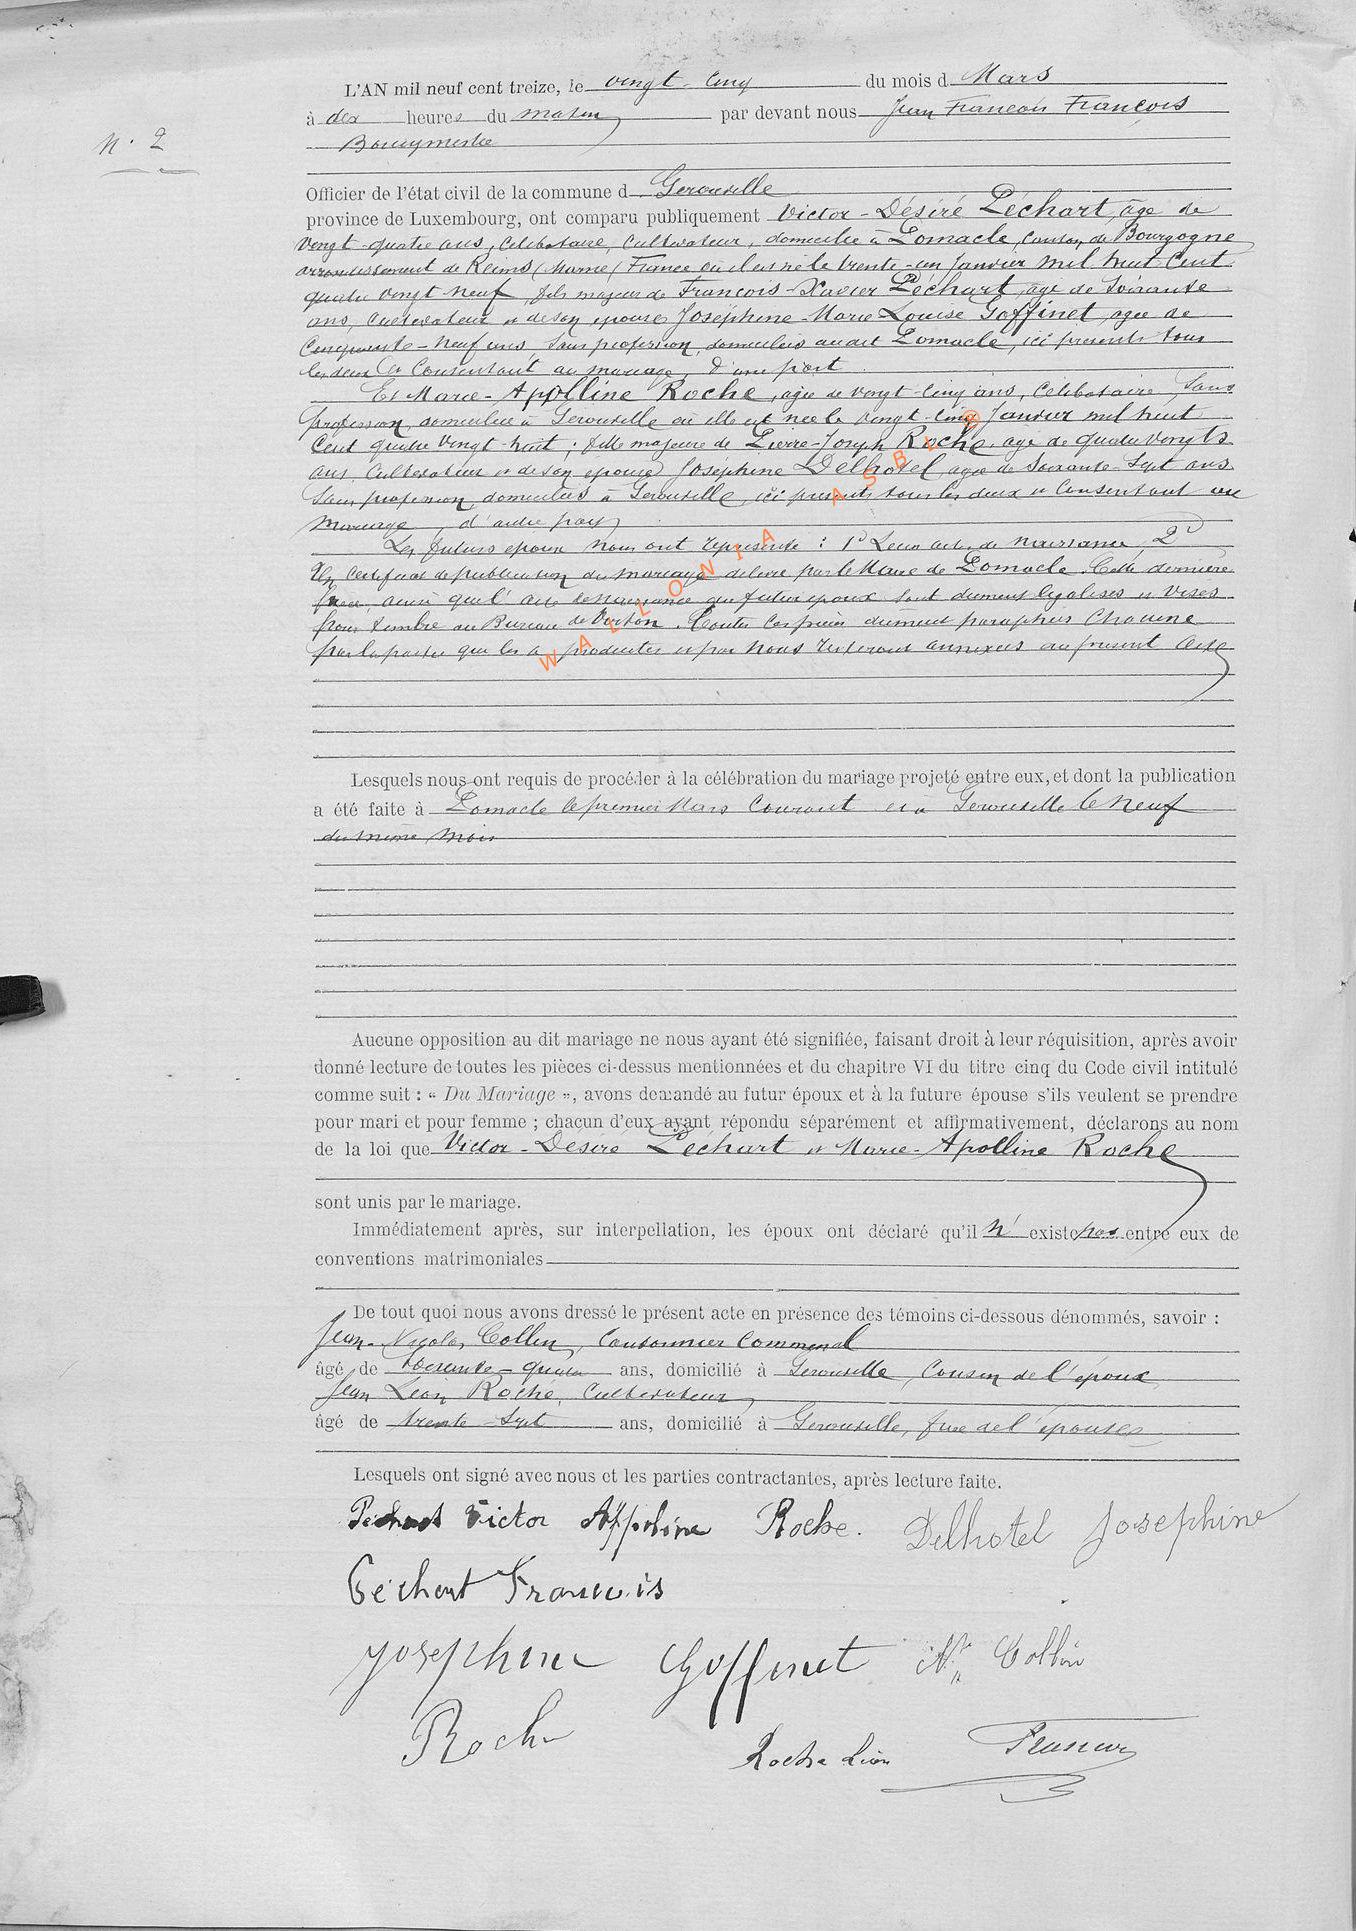 N. 2
L'AN mil neuf cent treize, le vingt-cinq du mois d Mars
à dix heures du matin par devant nous Jean François François
Bourgmestre
Officier de l'état civil de la commune d Gerouville
province de Luxembourg, ont comparu publiquement Victor-Désiré Péchart, âgé de
vingt-quatre ans, célibataire, cultivateur, domicilié à Pomacle, canton de Bourgogne
arrondissement de Reims (Marne) France où il est né le trente-un Janvier mil huit cent
quatre vingt neuf, fils majeur de François-Xavier Péchart, âgé de soixante
ans, cultivateur et de son épouse Joséphine-Marie Louise Goffinet, agée de
cinquante-neuf ans, sans profession, domiciliés audit Pomacle, ici présents tous
les deux et consentant au mariage, d'une part
Et Marie-Apolline Roche, agée de vingt-cinq ans, célibataire, sans
profession, domiciliée à Gerouville où elle est née le vingt-cinq Janvier mil huit
cent quatre vingt-huit; fille majeure de Pierre-Joseph Roche, agé de quatre vingts
ans, cultivateur et de son épouse Joséphine Delhotel, agée de soixante-sept ans
sans profession, domiciliés à Gerouville, ici présents tous les deux et consentant au
mariage, d'autre part
Les futurs époux nous ont représenté : 1° Leur acte de naissance, 2°
Un certificat de publication du mariage délivré par le Maire de Pomacle. Cette dernière
pièce, ainsi que l'acte de naissance du futur époux sont dument légalisés et visés
pour timbre au Bureau de Virton. Toutes ces pièces dument paraphées chacune
par la partie qui les a produites et par nous resteront annexées au présent acte
WALLONIA ASBL ®
Lesquels nous ont requis de procéder à la célébration du mariage projeté entre eux, et dont la publication
a été faite à Pomacle le premier Mars courant et à Gerouville le neuf
du même mois
Aucune opposition au dit mariage ne nous ayant été signifiée, faisant droit à leur réquisition, après avoir
donné lecture de toutes les pièces ci-dessus mentionnées et du chapitre VI du titre cinq du Code civil intitulé
comme suit : « Du Mariage », avons demandé au futur époux et à la future épouse s'ils veulent se prendre
pour mari et pour femme ; chacun d'eux ayant répondu séparément et affirmativement, déclarons au nom
de la loi que Victor-Désiré Péchart et Marie-Apolline Roche
sont unis par le mariage.
Immédiatement après, sur interpellation, les époux ont déclaré qu'il n' existe pas entre eux de
conventions matrimoniales
De tout quoi nous avons dressé le présent acte en présence des témoins ci-dessous dénommés, savoir :
Jean-Nicolas Collin, Cantonnier communal
âgé de soixante-quatre ans, domicilié à Gerouville, cousin de l'époux
Jean Léon Roche, cultivateur
âgé de trente-sept ans, domicilié à Gerouville, frère de l'épouse
Lesquels ont signé avec nous et les parties contractantes, après lecture faite.
Péchart Victor Appoline Roche. Delhotel Joséphine
Péchart François
Joséphine Goffinet Collin
Roche
Roche Léon François